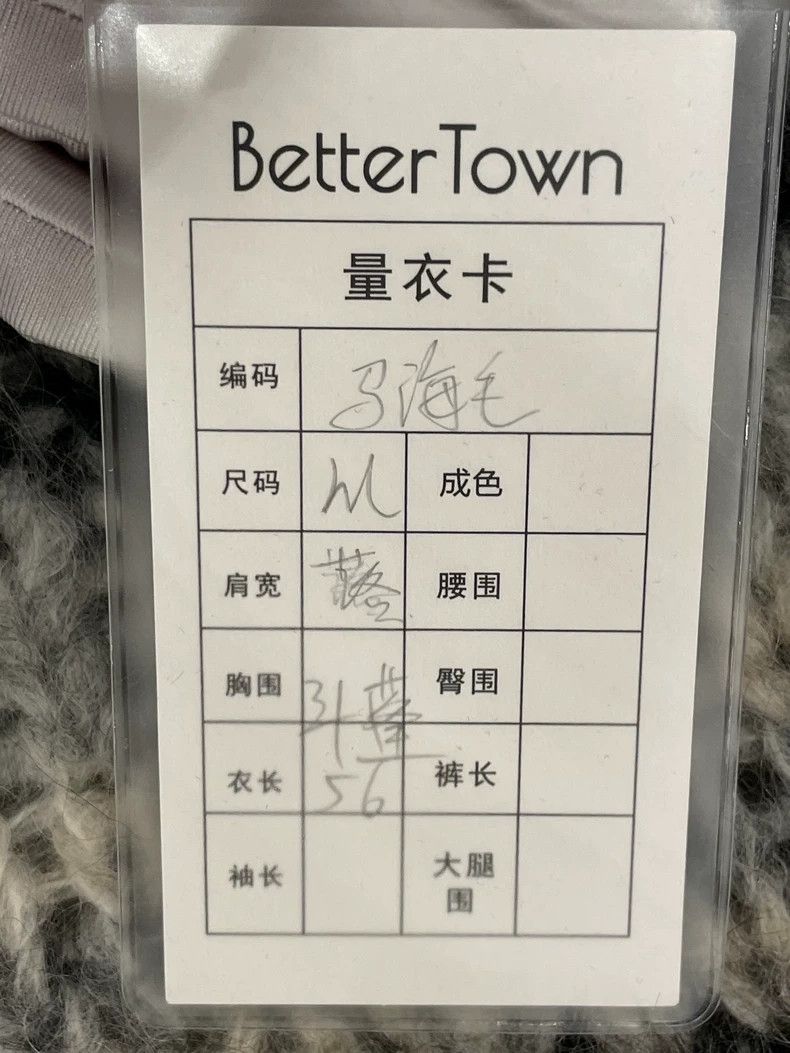 BetterTown
量衣卡
编码 马海毛
尺码 M 成色
肩宽 腰围
胸围 斗篷 臀围
衣长 56 裤长
袖长 大腿
围